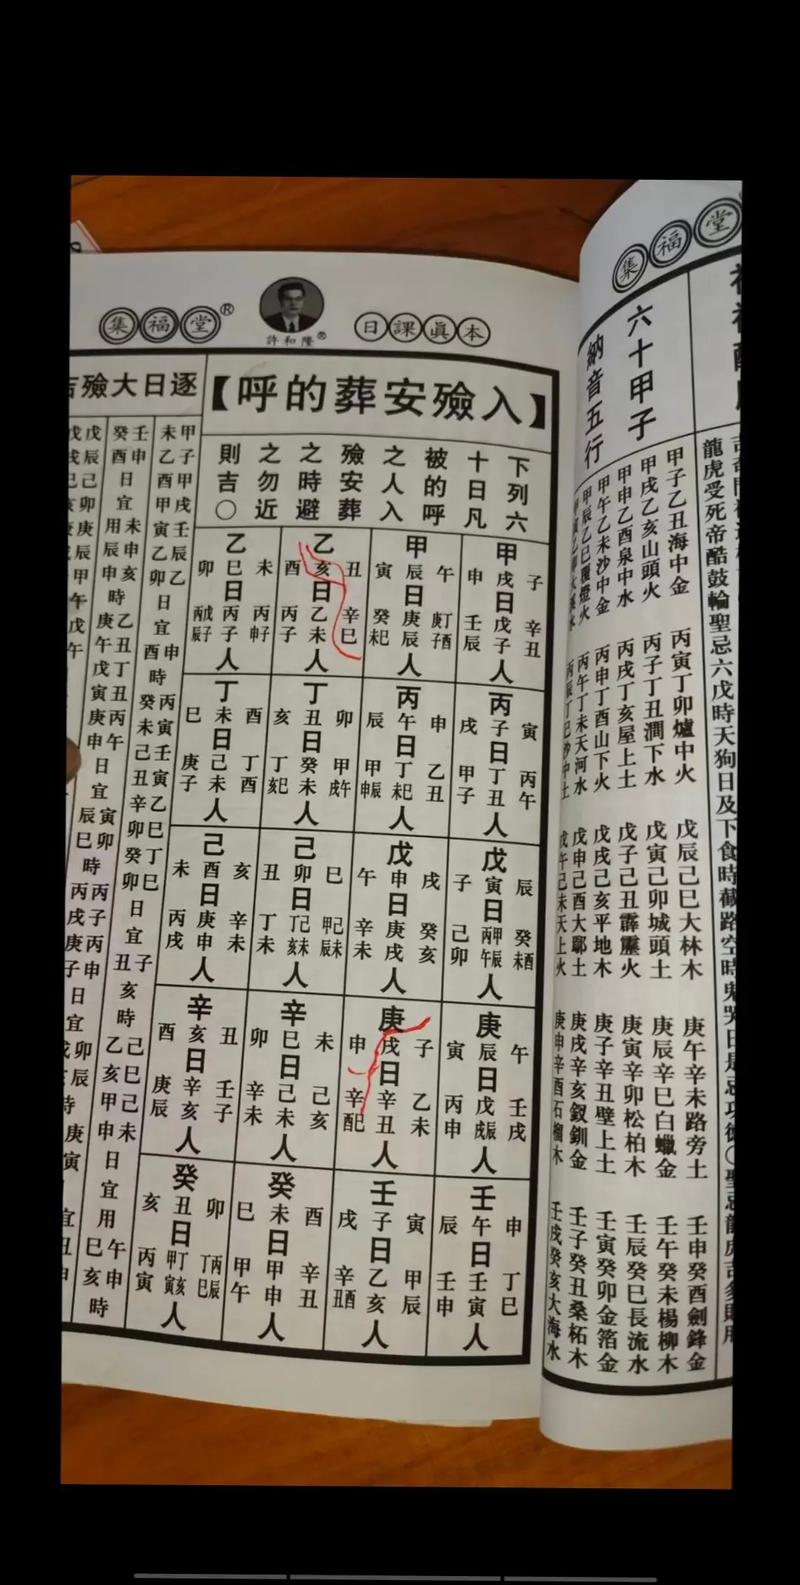 集福堂
六十甲子
納音五行
龍虎受死帝酷鼓輪聖忌六戊時天狗日及下食時截路空時鬼哭日是忌功德
甲子乙丑海中金
丙寅丁卯爐中火
戊辰己巳大林木
庚午辛未路旁土
壬申癸酉劍鋒金
甲戌乙亥山頭火
丙子丁丑澗下水
戊寅己卯城頭土
庚辰辛巳白蠟金
壬午癸未楊柳木
甲申乙酉泉中水
丙戌丁亥屋上土
戊子己丑霹靂火
庚寅辛卯松柏木
壬辰癸巳長流水
甲午乙未沙中金
丙申丁酉山下火
戊戌己亥平地木
庚子辛丑壁上土
壬寅癸卯金箔金
甲辰乙巳覆燈火
丙午丁未天河水
戊申己酉大驛土
庚戌辛亥釵釧金
壬子癸丑桑柘木
丙辰丁巳沙中土
戊午己未天上火
庚申辛酉石榴木
壬戌癸亥大海水
集福堂®
許和隆®
日課眞本
【入殮安葬的呼】
下列六
十日凡
被的呼
之人入
殮安葬
之時避
之勿近
則吉○
子 辛丑
甲戌日戊子人
申 壬辰
午 庚子丁酉
甲辰日庚辰人
寅 癸未己
丑 辛巳
乙亥日乙未人
酉 丙子
未 丙子申
乙巳日丙子人
卯 丙辰戊子
寅 丙午
丙子日丁丑人
戌 甲子
申 乙丑
丙午日丁未巳人
辰 甲申辰
卯 甲戌午
丁丑日癸未人
亥 丁亥巳
酉 丁酉
丁未日己未人
巳 庚子
辰 癸未酉
戊寅日丙午甲辰人
子 己卯
戌 癸亥
戊申日庚戌人
午 辛未
巳 甲辰己未
己卯日丁亥己未人
丑 丁未
亥 辛未
己酉日庚申人
未 丙戌
午 壬戌
庚辰日戊戌辰人
寅 丙申
子 乙未
庚戌日辛丑人
申 辛酉己
未 己亥
辛巳日己未人
卯 辛未
丑 壬子
辛亥日辛亥人
酉 庚辰
申 丁巳
壬午日壬寅人
辰 壬申
寅 甲辰
壬子日乙亥人
戌 辛丑酉
酉 辛丑
癸未日甲申人
巳 甲午
卯 丁巳丙辰
癸丑日甲寅丁亥人
亥 丙寅
逐日大殮吉
甲子甲戌壬辰乙
未乙酉甲寅乙卯日宜
申時
酉時
丙寅壬寅乙巳丁巳
癸未己丑辛卯癸卯日宜
子時
丑亥時
己巳己未
乙亥甲申日宜用
午申時
巳亥時
壬申
癸酉日宜
未申亥
用辰申時
乙丑丁丑丙午
庚午戊寅庚申日宜
寅卯時
辰巳時
丙子丙申
丙戌庚子日宜